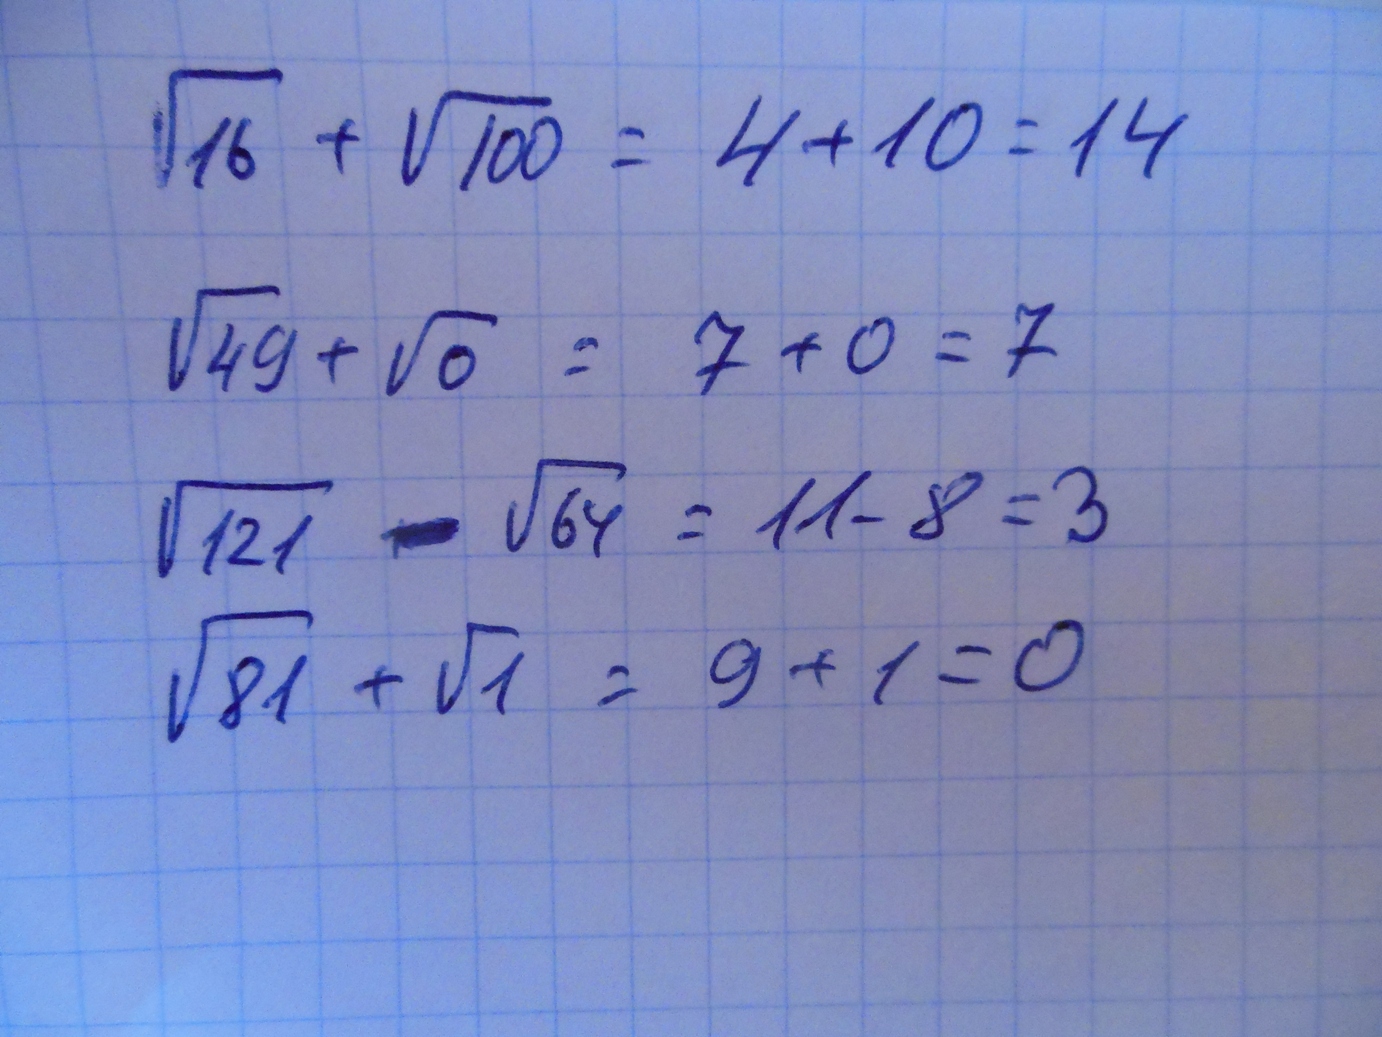 √16 + √100 = 4 + 10 = 14
√49 + √0 = 7 + 0 = 7
√121 - √64 = 11 - 8 = 3
√81 + √1 = 9 + 1 = 0